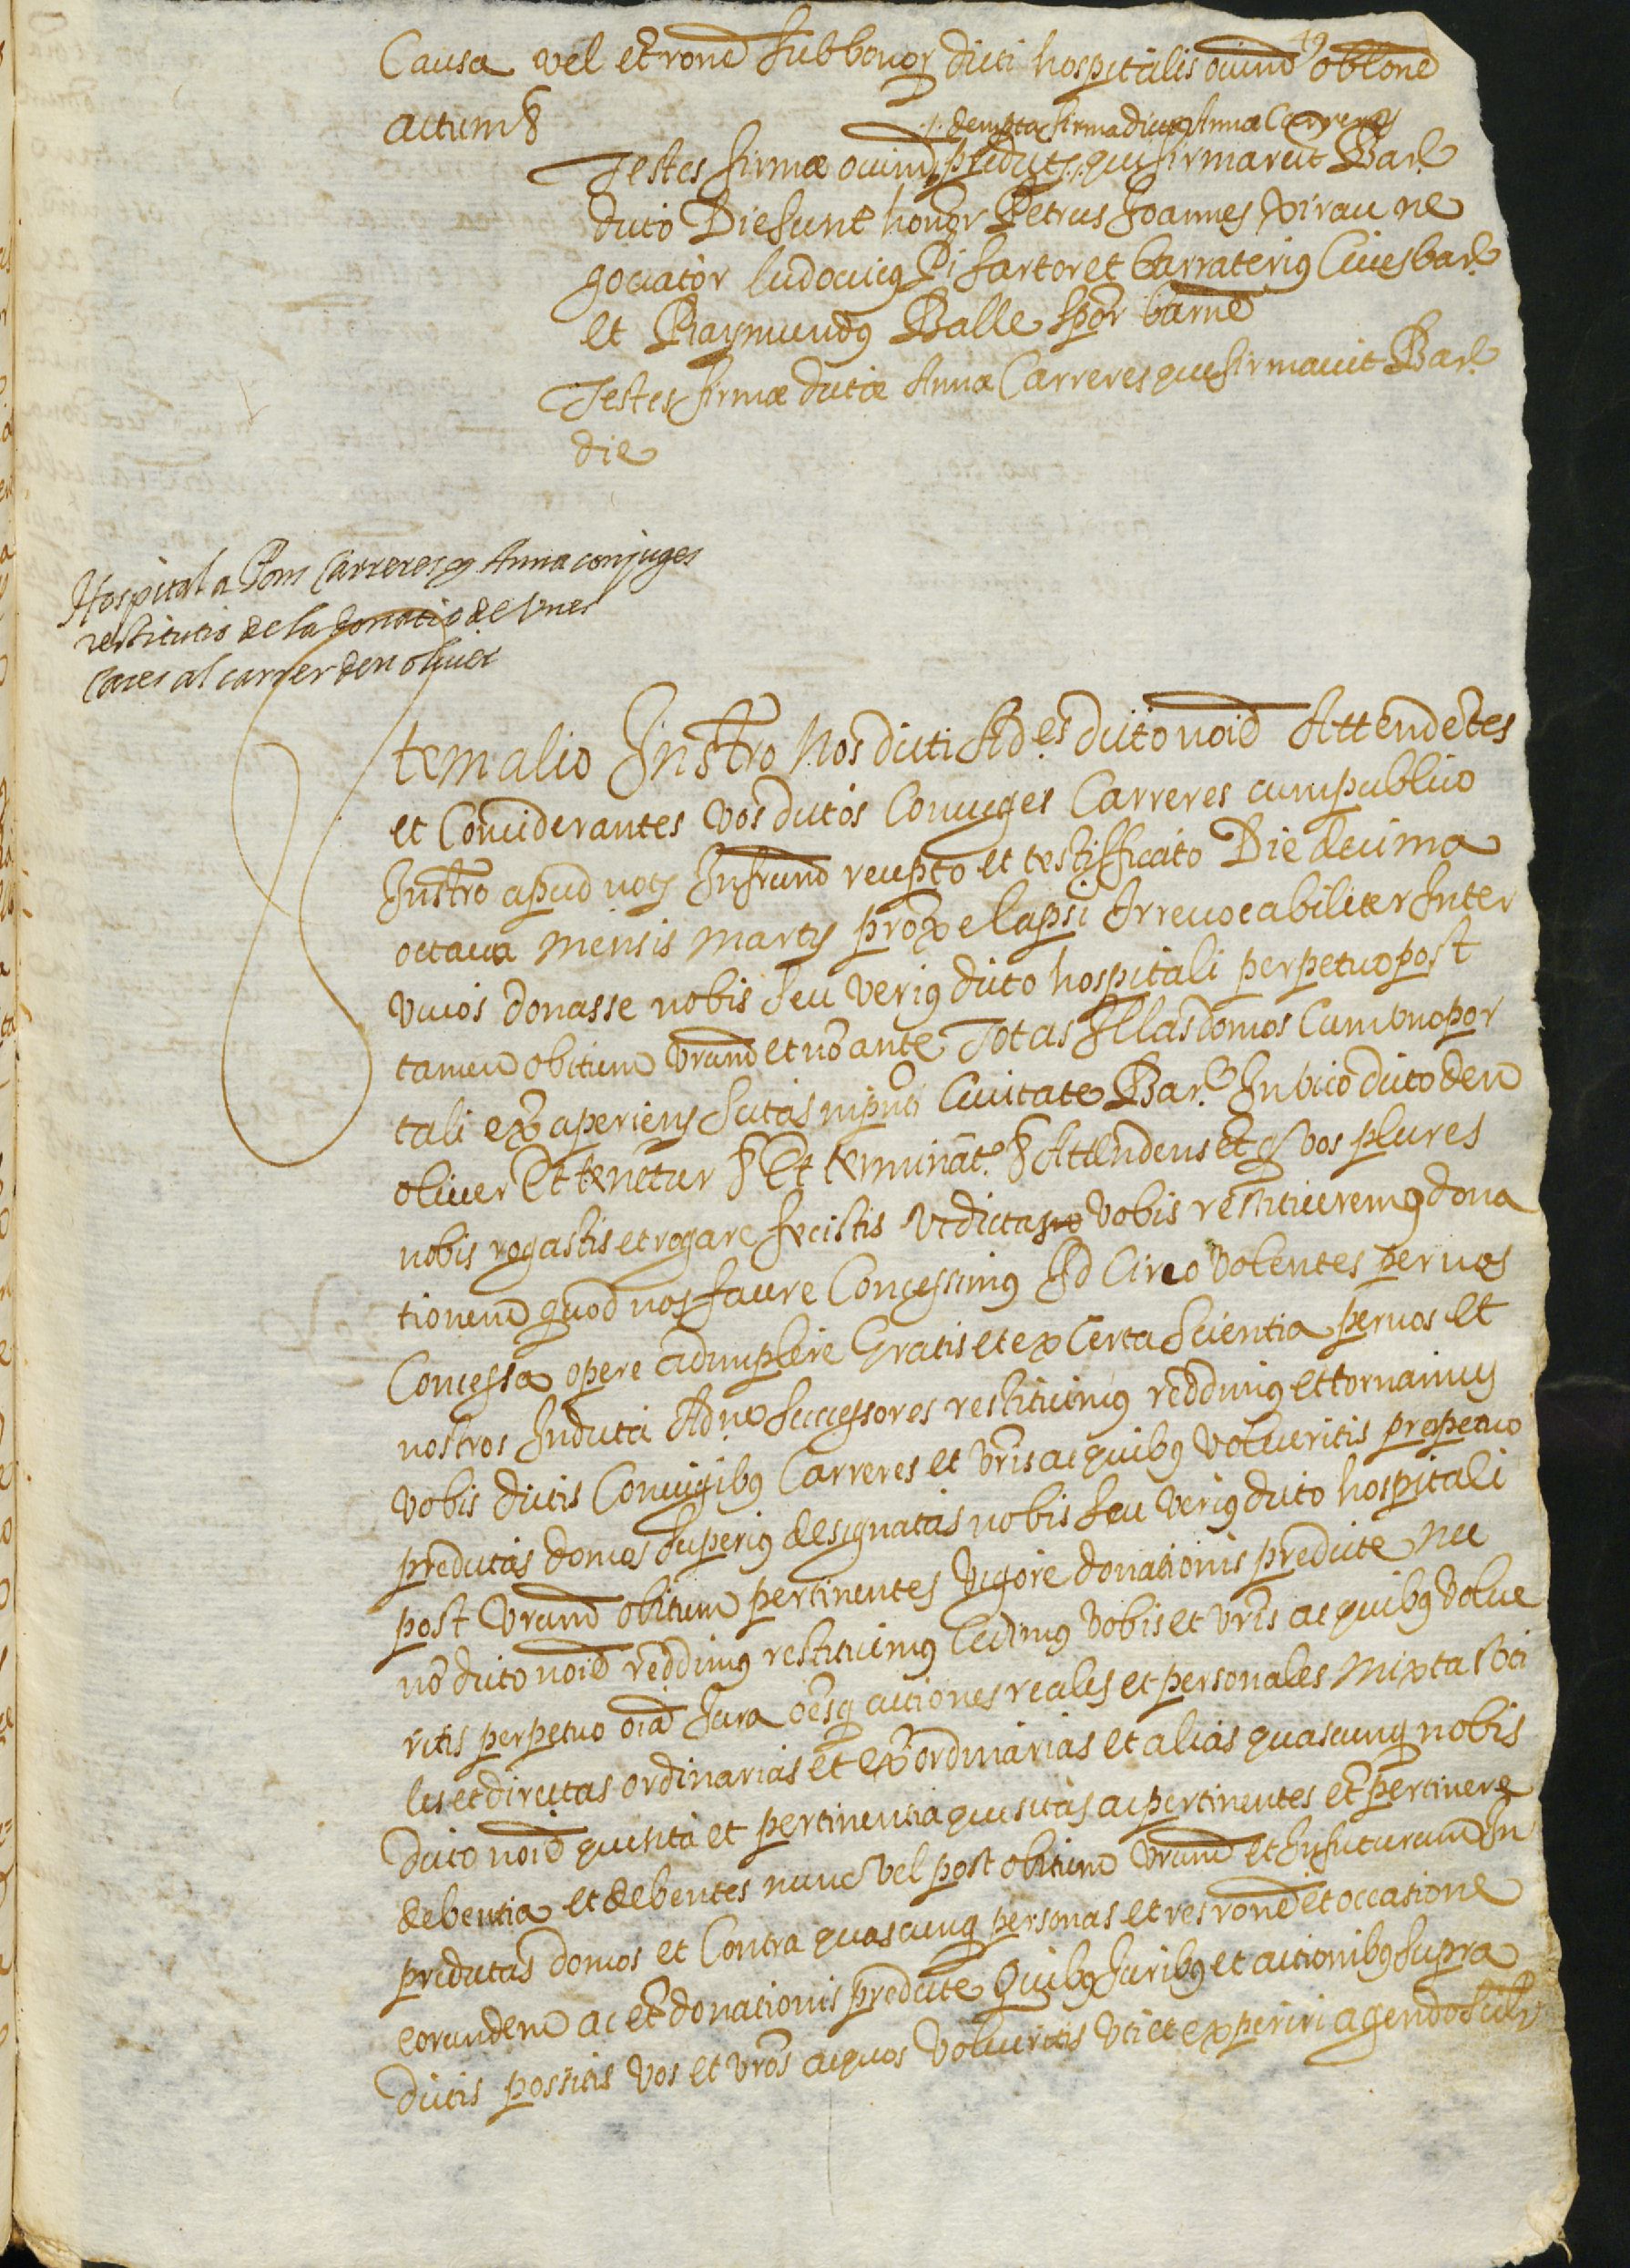 49
Causa vel et rone sub bonor dicti hospitalis oium oblone
actum &
./. dempta firma dictæ Annæ Carreres
Testes firmæ oium predict. /. qui firmarut Bar.
dicto Die sunt honor Petrus Joannes Xirau ne
gociator ludovicus Pi sartor et barraterius Cives bar.
et Raymundus Balle spor barne
Testes firmæ dictæ Annæ Carreres que firmavit Bar.
die
Hospital a Pom Carreres y Anna conjuges
restitutio de la donatio de unes
cases al carrer den oliver
Item alio Instro Nos dicti Ad.es dicto noie Attendetes
et Considerantes vos dictos Conuges Carreres cum publico
Instro apud noty Infrum recepto et testifficato Die decima
octava mensis marty prox elapsi Irrevocabiliter Inter
vivos donasse nobis seu verius dicto hospitali perpetuo post
tamen obitum vrum et no ante Totas Illas domos Cum uno por
tali ex aperiens sitas in pnti Civitate Bar.e In vico dicto den
oliver Et tenetur & Et terminat.r & Attendens Et q vos plures
nobis rogastis et rogare fecistis ut dictas vobis restitueremus dona
tionem quod nos facere Concessimus Id Circo volentes per nos
Concessa opere adimplere Gratis et ex Certa Scientia per nos et
nostros In dicta Ad.ne successores restituimus reddimus et tornamus
vobis dictis Coniugibus Carreres et vris ac quibus volueritis prepetuo
predictas domos superius designatas nobis seu verius dicto hospitali
post vrum obitum pertinentes vigore donationis predicte nec
no dicto noie reddimus restituimus Cedimus vobis et vris ac quibus volue
ritis perpetuo oia Jura oesq actiones reales et personales mixtas uti
les et directas ordinarias et exordinarias et alias quascunq nobis
dicto noie quesita et pertinentia quesitas ac pertinentes et pertinere
debentia et debentes nunc vel post obitum vrum et In futurum In
predictas domos et Contra quascunq personas et res rone et occasione
eorundem ac et donationis predicte Quibus Juribus et actionibus supra
dictis possitis vos et vros ac quos volueritis uti et experiri agendo scilt